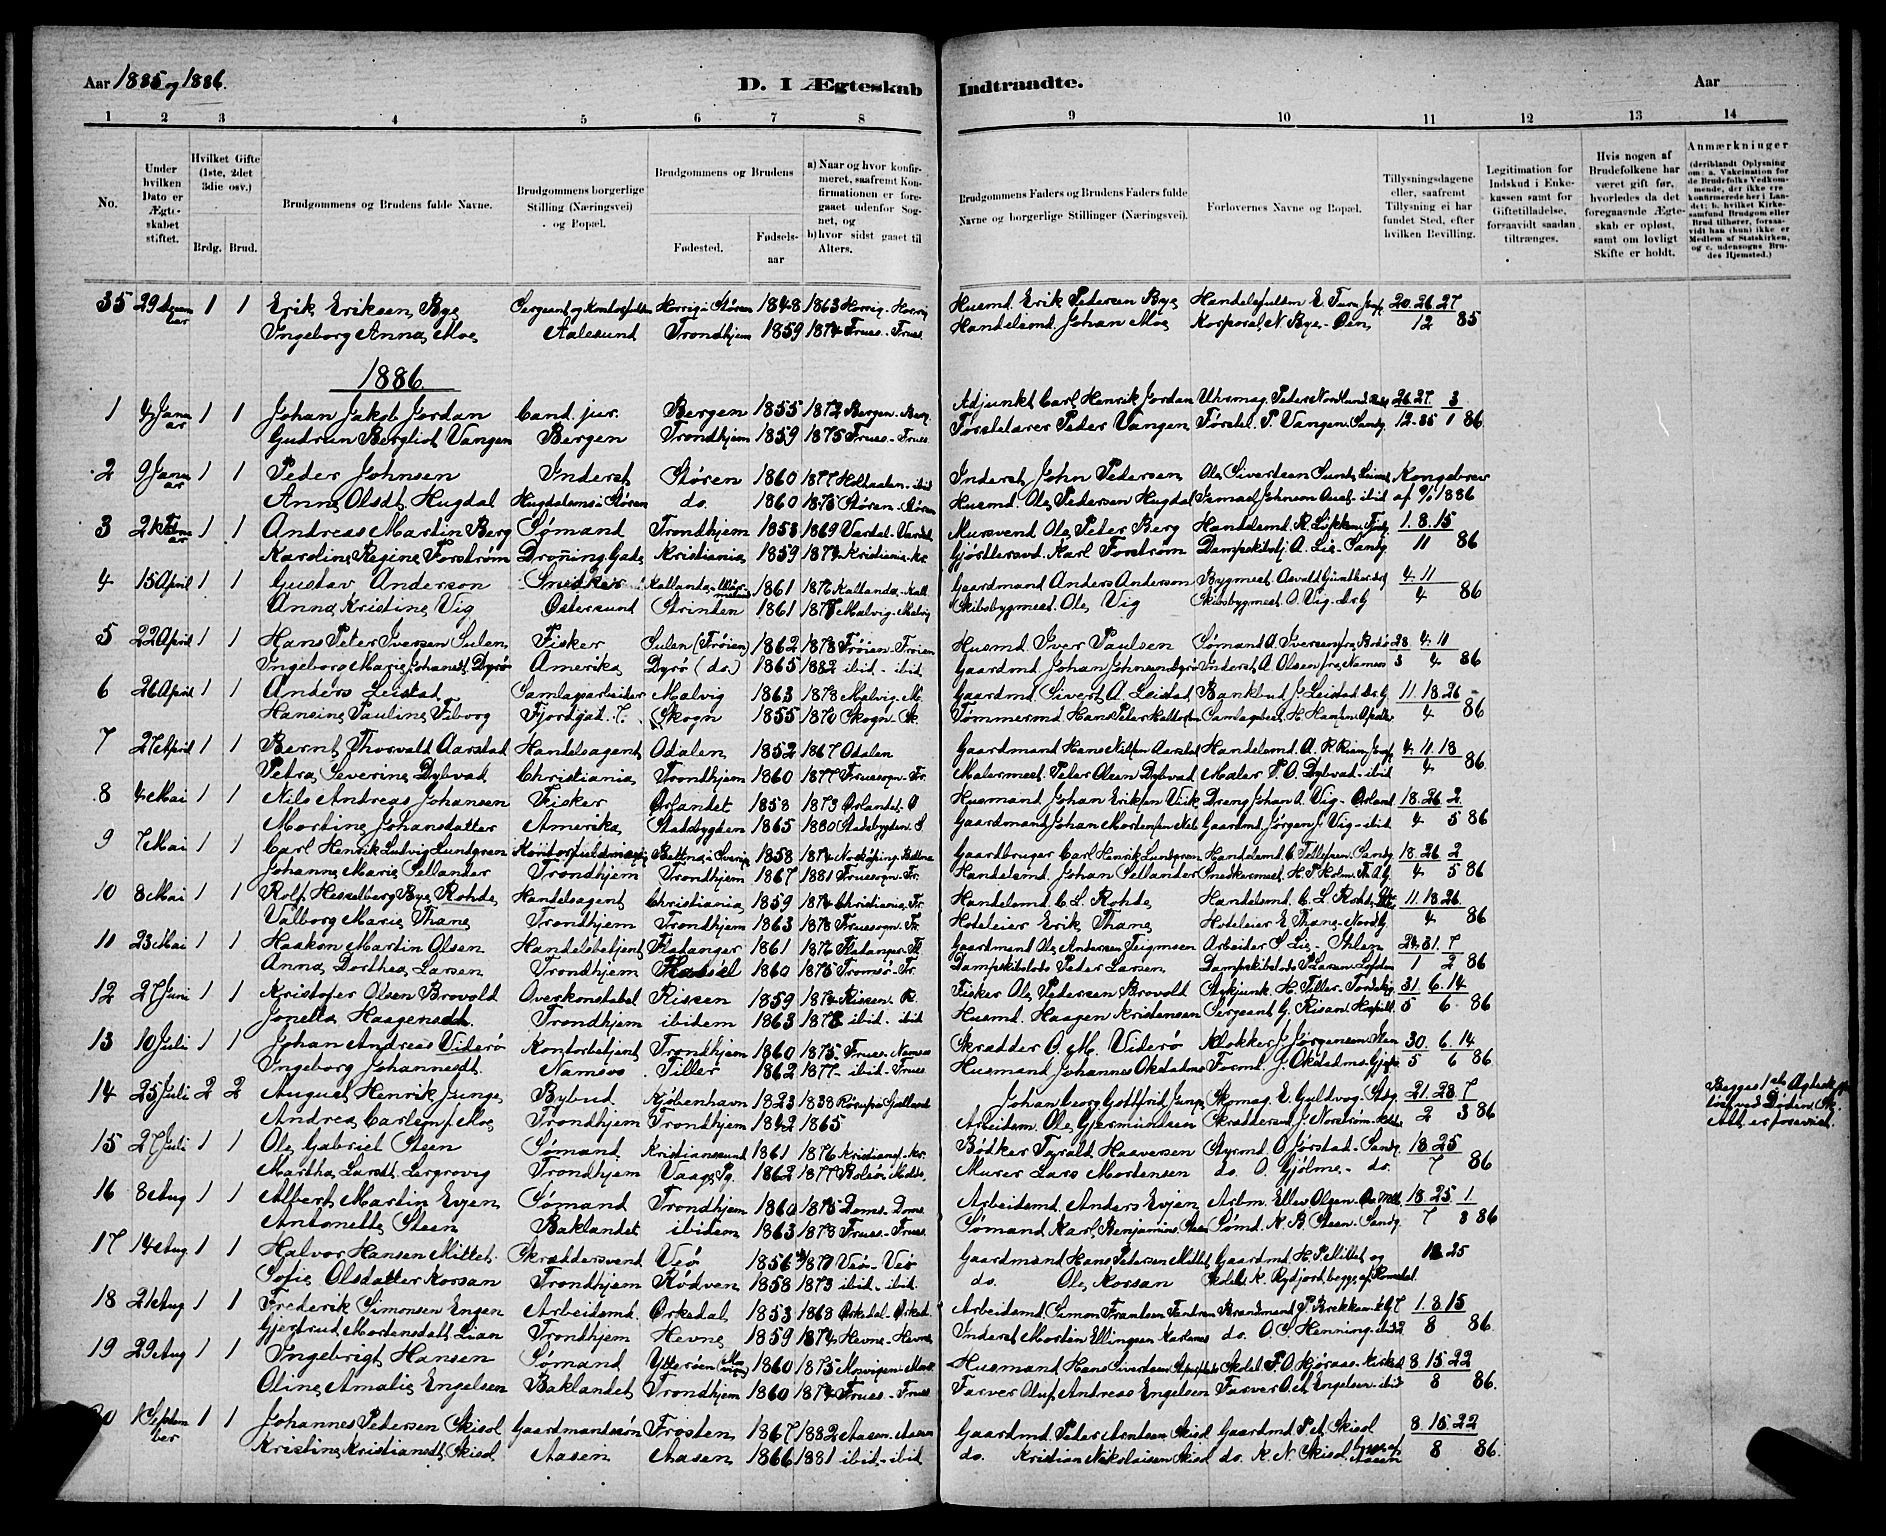 Aar 1885 og 1886.
D. I Ægteskab Indtraadte.
Aar
1 2 3 4 5 6 7 8 9 10 11 12 13 14
No.
Under hvilken Dato er Ægteskabet stiftet.
Hvilket Gifte (1ste, 2det 3die osv.)
Brdg. Brud.
Brudgommens og Brudens fulde Navne.
Brudgommens borgerlige Stilling (Næringsvei) og Bopæl.
Brudgommens og Brudens
Fødested. Fødselsaar
a) Naar og hvor konfirmeret, saafremt Konfirmationen er foregaaet udenfor Sognet, og
b) hvor sidst gaaet til Alters.
Brudgommens Faders og Brudens Faders fulde Navne og borgerlige Stillinger (Næringsvei).
Forlovernes Navne og Bopæl.
Tillysningsdagene eller, saafremt Tillysning ei har fundet Sted, efter hvilken Bevilling.
Legitimation for Indskud i Enkekassen samt for Giftetilladelse, forsaavidt saadan tiltrænges.
Hvis nogen af Brudefolkene har været gift før, hvorledes da det foregaaende Ægteskab er opløst, samt om lovligt Skifte er holdt.
Anmærkninger (deriblandt Oplysning om: a. Vakcination for de Brudefolks Vedkommende, der ikke ere konfirmerede her i Landet; b. hvilket Kirkesamfund Brudgom eller Brud tilhører, forsaavidt han (hun) ikke er Medlem af Statskirken, og c. udensogns Brudes Hjemsted.)
35 29 Decem 1 1 Erik Eriksen Bye Sergeant og Horrig i Støren 1848 1863 Horrig - Horrig Husmd. Erik Pedersen Bye 20. 26. 27
ber Ingeborg Anna Moe Aalesund Trondhjem 1859 1874 Frues - Frues. Handelsmd. Johan Moe Korporal N. Bye - Øen 12 85
1886.
1 4 Janu 1 1 Johan Jakob Jordan Cand. jur. Bergen 1855 1872 Bergen - Berg. Adjunkt Carl Henrik Jordan Uhrmag. Peder Nordlund 26. 27. 3
ar Gudrun Bergliot Vangen Bergen Trondhjem 1859 1875 Frues - Frues. Førstelærer Peder Vangen Førstel. P. Vangen. Sandg. 12-85 1 86
2 9 Janu 1 1 Peder Johnsen Inderst Støren 1860 1877 Holtaalen - ibid Inderst John Pedersen Ole Sivertsen Kongebrev
ar Anne Olsdt. Hugdal Hugdalsmo i Støren do. 1860 1875 Støren - Støren Husmd. Ole Pedersen Hugdal Ismael Johnsen - ibid af 9/1 1886
3 21 Febru 1 1 Andreas Martin Berg Sømand Trondhjem 1853 1869 Vardal - Vardal Mursvend Ole Peter Berg Handelsmd. R. Løkken 1. 8. 15
ar Karoline Regine Forstrøm Droning Gade Kristiania 1859 1874 Kristiania - Kr. Gjørtlersvd. Karl Forstrøm Dampskibsbj. A. Lie. Sandg 11 86
4 15 April 1 1 Gustav Anderson Snedker Kallands - 1861 1876 Kallands - Kall. Gaardmand Anders Anderson Bygmest. Osvald 4. 11
Anna Kristine Vig Østersund Strinden 1861 1877 Malvig - Malvig Skibsbygmest. Ole Vig Skibsbygmest. O. Vig - 4 86
5 22 April 1 1 Hans Peter Iversen Sulen Fisker Sulen (Frøien) 1862 1878 Frøien - Frøien Husmd Iver Paulsen Sømand A. Iversen fra Bodø 28. 4. 11
Ingeborg Marie Johansdt. Dyrø Amerika Dyrø (do) 1865 1882 ibid - ibid. Gaardmd. Johan Johnsen Dyrø Inderst A. Olsen fra Namsos 3 4 86
6 26 April 1 1 Anders Leistad Samlagsarbeider Malvig 1863 1878 Malvig - M. Gaardmd Sivert A. Leistad Bankbud J. Leistad 11. 18. 26
Hansine Pauline Fiborg Fjordgad. 7. Skogn 1855 1870 Skogn - Sk. Tømmermd Hans Peter Samlagsbest. H. Hansen 4 86
7 27 April 1 1 Bernt Thorvald Aarstad Handelsagent Odalen 1852 1867 Odalen Gaardmand Hans Nilsen Aarstad Handelsmd. A. R. 4. 11. 18
Petra Severine Dybvad Christiania Trondhjem 1860 1877 Fruesogn - Fr. Malermest. Peter Olsen Dybvad Maler P. O. Dybvad - ibid 4 86
8 4 Mai 1 1 Nils Andreas Johansen Fisker Ørlandet 1858 1873 Ørlandet - Ø Husmand Johan Eriksen Viik Dreng Johan A. Vig - Ørland 18. 26. 2
Martine Johansdatter Amerika Stadsbygden 1865 1880 Stadsbygden. S. Gaardmand Johan Mortensen Gaardmd. Jørgen J. Vig - ibid 4 5 86
9 7 Mai 1 1 Carl Henrik Ludvig Lundgren Kontorfuldmægtig i Sverig 1858 1874 Norköping Gaardbruger Carl Henrik Lundgren Handelsmd. C. Tellefsen. Sandg 18. 26. 2
Johanne Marie Sellander Trondhjem Trondhjem 1867 1881 Fruesogn - Fr. Handelsmd. Johan Sellander Snedkermest. H. P. Holm. 4 5 86
10 8 Mai 1 1 Rolf Hesselberg Bye Rohde Handelsagent Christiania 1859 1874 Christiania - Fr. Handelsmd. C. L. Rohde Handelsmd. C. L. Rohde 11. 18. 26.
Valborg Marie Thane Trondhjem Trondhjem 1863 1878 Fruesogn - Fr. Hoteleier Erik Thane Hoteleier E. Thane - Nordg. 4 86
11 23 Mai 1 1 Haakon Martin Olsen Handelsbetjent Flatanger 1861 1876 Flatanger - Fl. Gaardmand Ole Andersen Arbeider S. Lie - Ihlen 24. 31. 7
Anna Dorthea Larsen Trondhjem 1860 1875 Tromsø - Fr. Dampskibslods Peder Larsen Dampskibslods P. Larsen 1 2 86
12 27 Juni 1 1 Kristofer Olsen Brovold Overkonstabel Rissen 1859 1874 Rissen - R. Fisker Ole Pedersen Brovold H. Tiller - 31. 6. 14
Jonetta Haagensdt. Trondhjem ibidem 1863 1878 ibid - ibid Husmd. Haagen Kristensen Sergeant G. Risan 5 6 86
13 10 Juli 1 1 Johan Andreas Viderø Kontorbetjent Trondhjem 1860 1875 Frues - Namsos Skrædder O. M. Viderø Klokker J. Jørgensen 30. 6. 14
Ingeborg Johannesdt. Namsos Tiller 1862 1877 - ibid - Frues Husmand Johannes Okstadmo Formd. J. Okstadmo 5 6 86
14 25 Juli 2 2 August Henrik Junge Bybud Kjøbenhavn 1823 1838 Sjælland Johan Georg Gottfrid Junge Skomag. E. Gyldvog 21. 28. 7
Andrea Carlems. f. Moe Trondhjem Trondhjem 1842 1865 Arbeidsm. Ole Gjermundsen Skræddersvd. J. Norstrøm 2 3 86
Begges 1ste Ægtesk. opløst ved Døden.
15 27 Juli 1 1 Ole Gabriel Steen Sømand Kristianssund 1861 1876 Kristians. - Kr. Bødker Haaversen Styrmd. O. Gjørstad - Sandg 18. 25
Martha Larsdt. Trondhjem Vaage 1862 1877 - Molde Murer Lars Mortensen do. O. Gjølme - do. 7 86
16 8 Aug 1 1 Albert Martin Evjen Sømand Trondhjem 1860 1875 Doms - Doms Arbeidsmd. Anders Evjen Arbm. Ellev Olsen 18. 25 1
Antonette Steen Baklandet ibidem 1863 1878 Frues - Frues Sømand Karl Benjamins. Steen Sømd. K. B. Steen. Sandg 7 8 86
17 14 Aug 1 1 Halvor Hansen Mittet Skræddersvend Veø 1856 1870 Veø - Veø Gaardmand Hans Petersen Mittet Gaardmd. H. P. Mittet og 18 25
Sofie Olsdatter Korsan Trondhjem Rødven 1858 1873 ibid - ibid. do. Ole Korsan K. Rydjord, begge af Romsdal
18 21 Aug 1 1 Frederik Simonsen Engen Arbeidsmd. Orkedal 1853 1868 Orkedal - Orked Arbeidsmd. Simon Frantsen Brandmand P. Brekken 1. 8. 15
Gjertrud Mortensdatt. Lian Trondhjem Hevne 1859 1874 Hevne - Hevne Inderst Morten Ellingsen do. O. S. Henning - ibid 8 86
19 29 Aug 1 1 Ingebrigt Hansen Sømand Ytterøen 1860 1875 Husmand Hans Sivertsen Skolel. P. O. Kjøraas - 8 15 22
Oline Amalie Engelsen Baklandet Trondhjem 1860 1874 Frues - Frues Farver Oluf Andreas Engelsen Farver O. A. Engelsen - ibid 8 86.
20 1 Septem 1 1 Johannes Pedersen Skisol Gaardmandssøn Frosten 1867 1882 Aasen - Aasen Gaardmd Peder Arntsen Skisol Gaardmd P. A. Skisol 8. 15 22
ber Kristine Kristiansdt. Skisol Aasen Aasen 1866 1881 ibid - ibid do. Kristian Nikolaisen Skisol do. K. N. Skisol begge af Aasen 8 86.